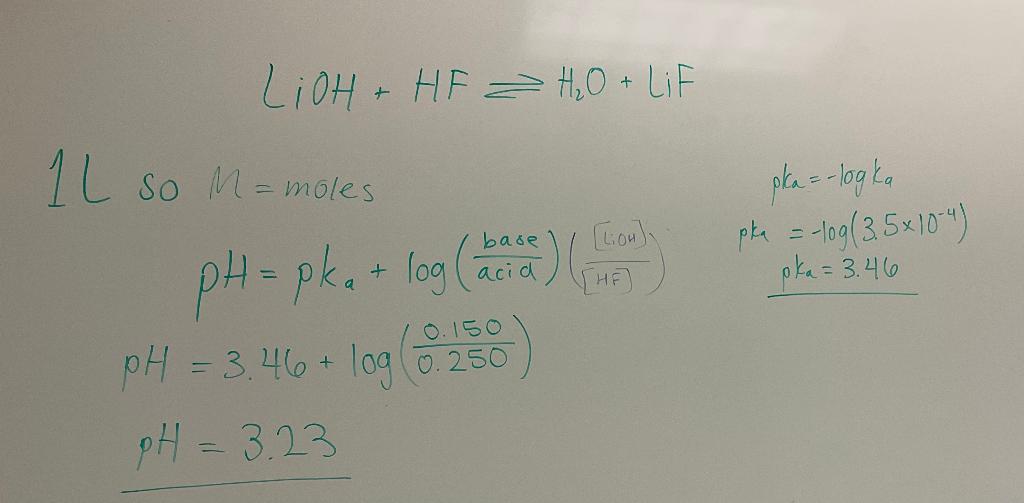 LiOH + HF ⇌ H₂O + LiF
1L so M = moles
pH = pka + log(base/acid) ([LiOH]/[HF])
pH = 3.46 + log(0.150/0.250)
pH = 3.23
pka = -log ka
pka = -log(3.5×10⁻⁴)
pka = 3.46